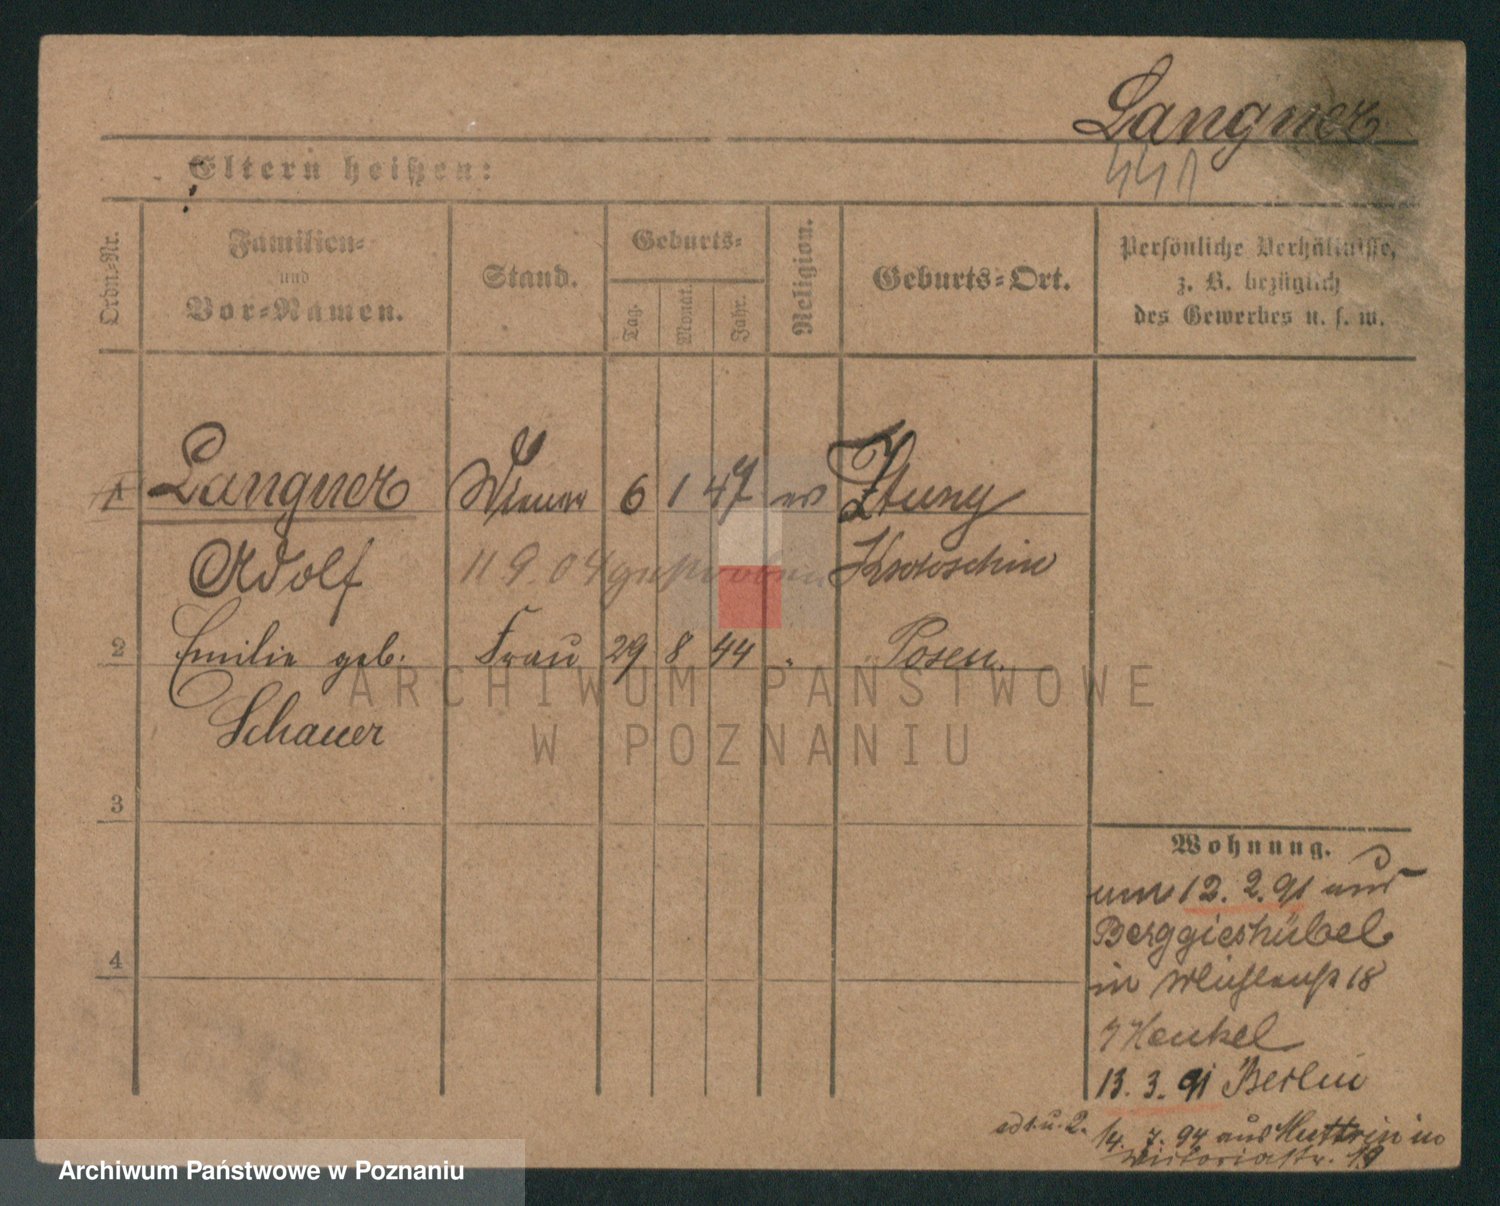 Langner
Eltern heißen:
Ordn.-Nr.
Familien-
und
Vor-Namen.
Stand.
Geburts-
Tag.
Monat.
Jahr.
Religion.
Geburts-Ort.
Persönliche Verhältnisse,
z. B. bezüglich
des Gewerbes u. s. w.
1 Langner 6 1 47 Zduny
Adolf 11 9. 04 gestorben Krotoschin
2 Emilie geb. Frau 29 8 44 " Posen
Schauer
3
4
Wohnung.
12. 2. 91 aus
Berggieshübel
in 18
Henkel
13. 3. 91 Berlin
14. 7. 94 aus in
Victoriastr. 19
ARCHIWUM PAŃSTWOWE
W POZNANIU
Archiwum Państwowe w Poznaniu